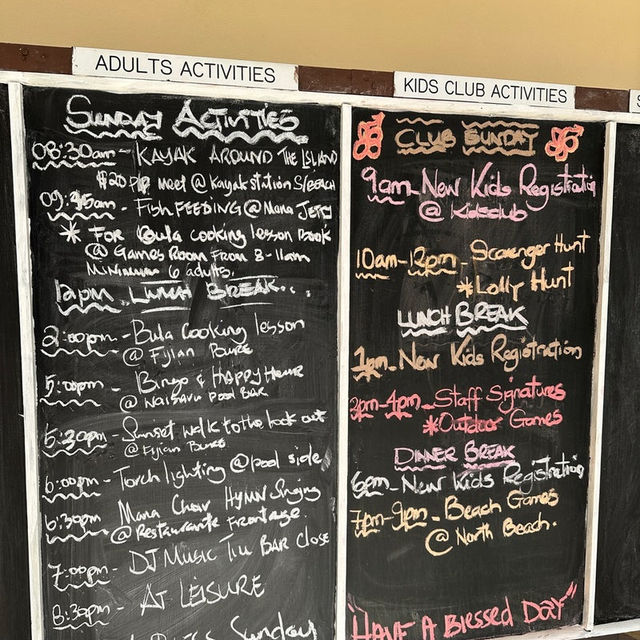 ADULTS ACTIVITIES
SUNDAY ACTIVITIES
08:30am - KAYAK AROUND THE ISLAND
$20 p/p meet @ Kayak station S/Beach
09:15am - FISH FEEDING @ Mana JETTY
* FOR Bula cooking lesson Book
@ Games Room From 8-11am
MINIMUM 6 adults.
12pm LUNCH BREAK...
2:00pm - Bula Cooking lesson
@ Fijian Bure
5:00pm - Bingo & HAPPY Hour
@ Pool BAR
5:30pm - Sunset walk to the look out
@ Fijian Bure
6:00pm - Torch lighting @ pool side
6:30pm - Mana Choir HYMN Singing
@ Restaurante Frontage.
7:00pm - DJ MUSIC TILL BAR close
8:30pm - AT LEISURE
Sunday
KIDS CLUB ACTIVITIES
CLUB SUNDAY
9am - New Kids Registration
@ Kidsclub
10am - 12pm - Scavenger Hunt
* Lolly Hunt
LUNCH BREAK
1pm - New Kids Registration
3pm - 4pm - Staff Signatures
* Outdoor Games
DINNER BREAK
6pm - New Kids Registration
7pm - 9pm - Beach Games
@ North Beach.
"HAVE A Blessed DAY"
S